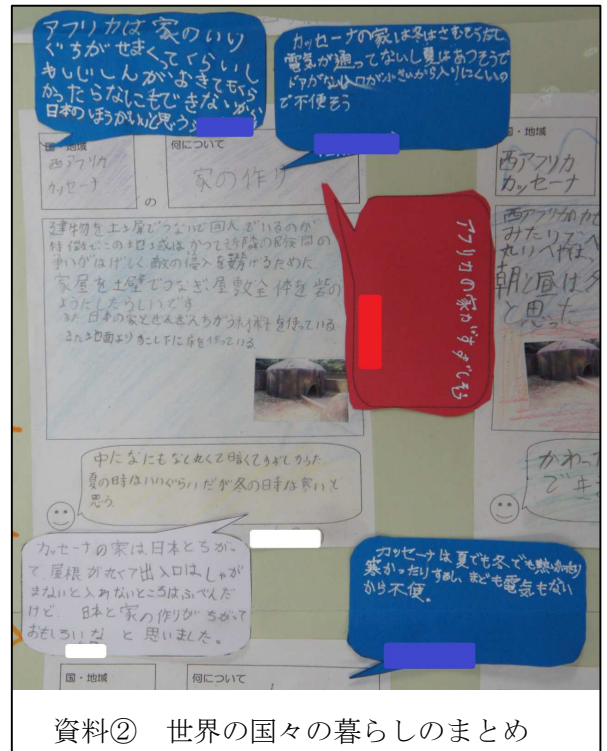 アフリカは家のいり
ぐちがせまくてくらいし
もしじしんがおきてもくら
かったらなにもできないから
日本のほうがいいと思う。
カッセーナの家は冬はさむそうだし
電気が通ってないし夏はあつそうで
ドアがない入口が小さいから入りにくいの
で不便そう
国・地域
西アフリカ
カッセーナ
の
何について
家の作り
国・地域
西アフリカ
カッセーナ
建物を土壁でつないで囲んでいるのが
特徴でこの地域はかつて近隣の民族間の
争いがはげしく敵の侵入を防げるために
家屋を土壁でつなぎ屋敷全体を砦の
ようにしたらしいです
また日本の家とぜんぜんちがう材料を使っている
また地面よりすこし下に床を作っている
アフリカの家がすずしそう
西アフリカの
丸いへやは
朝と昼は夕
と思った
中になにもなく丸くて暗くてすずしかった
夏の時はいいぐらいだが冬の日は寒いと
思う
かわっ
でき
カッセーナの家は、日本とちがっ
て、屋根が丸くて出入口は、しゃが
まないと入れないところはふべんだ
けど、日本と家の作りがちがって
おもしろいな と思いました。
カッセーナは夏でも冬でも
寒かったりするし、まども電気もない
から不便。
国・地域
何について
資料② 世界の国々の暮らしのまとめ